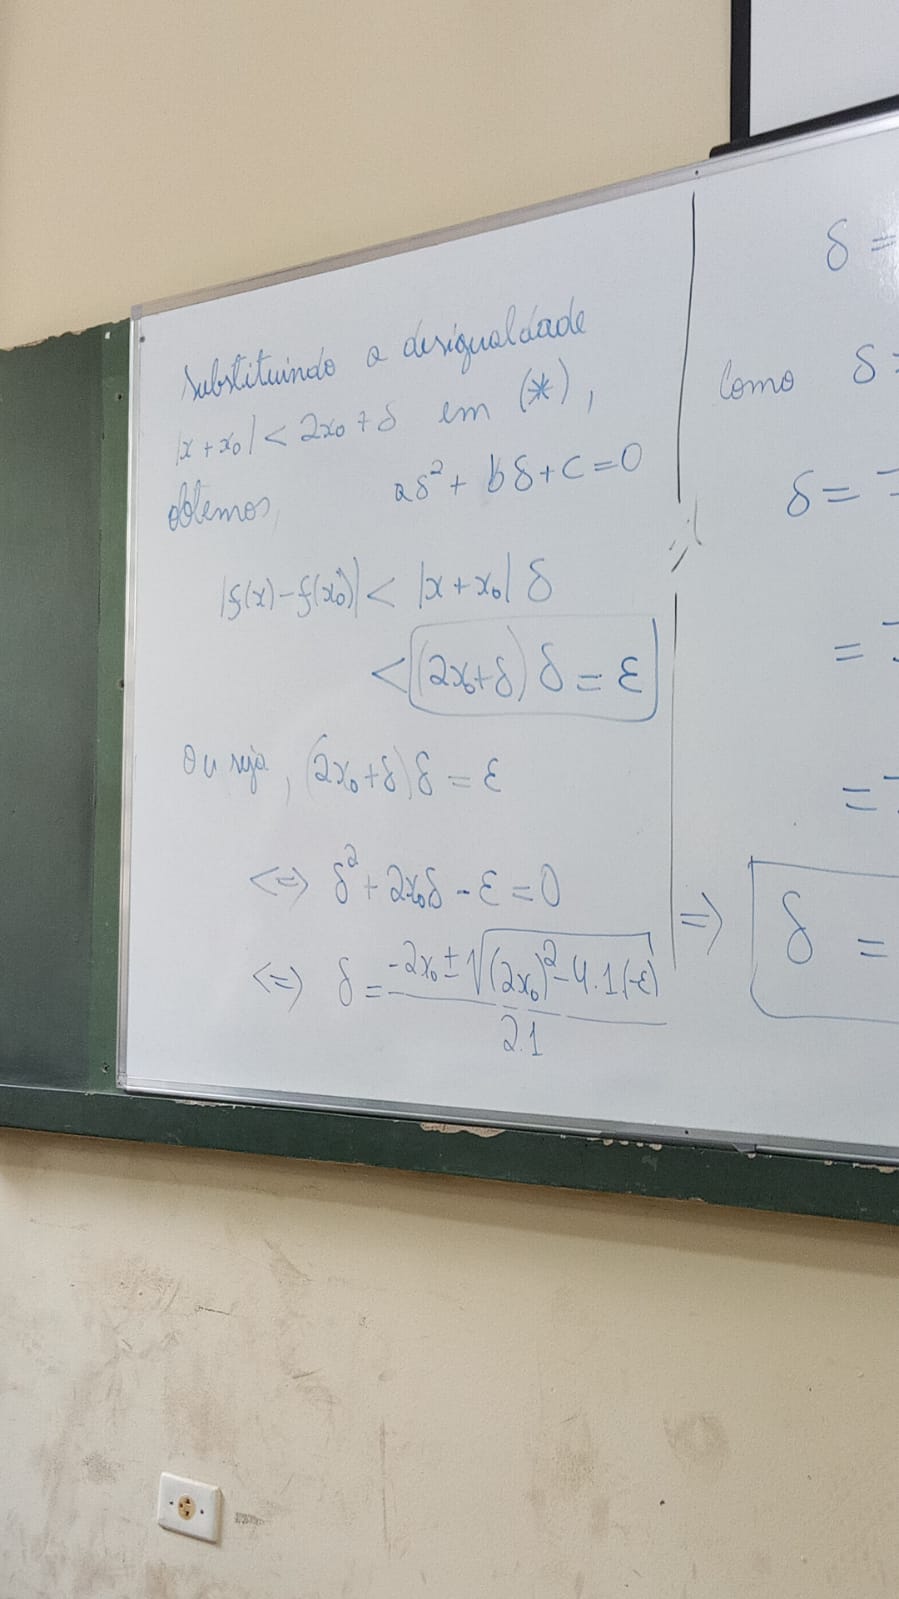 Substituindo a desigualdade
|x + x₀| < 2x₀ + δ em (*),
obtemos, aδ² + bδ + c = 0
|f(x) - f(x₀)| < |x + x₀| δ
< (2x₀+δ) δ = ε
Ou seja, (2x₀ + δ) δ = ε
<=> δ² + 2x₀δ - ε = 0
<=> δ = (-2x₀ ± √((2x₀)² - 4.1(-ε))) / 2.1
δ =
Como δ =
δ = -
=
= -
=> δ =